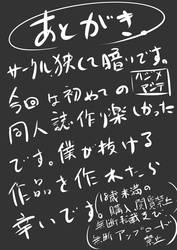 あとがき。
サークル狭くて暗いです。
今回は初めての
同人誌作り楽しかった
です。僕が抜ける
作品を作れたら
幸いです。
(18歳未満の
購入、閲覧禁止
無断転載及び
無断アップロード
禁止)